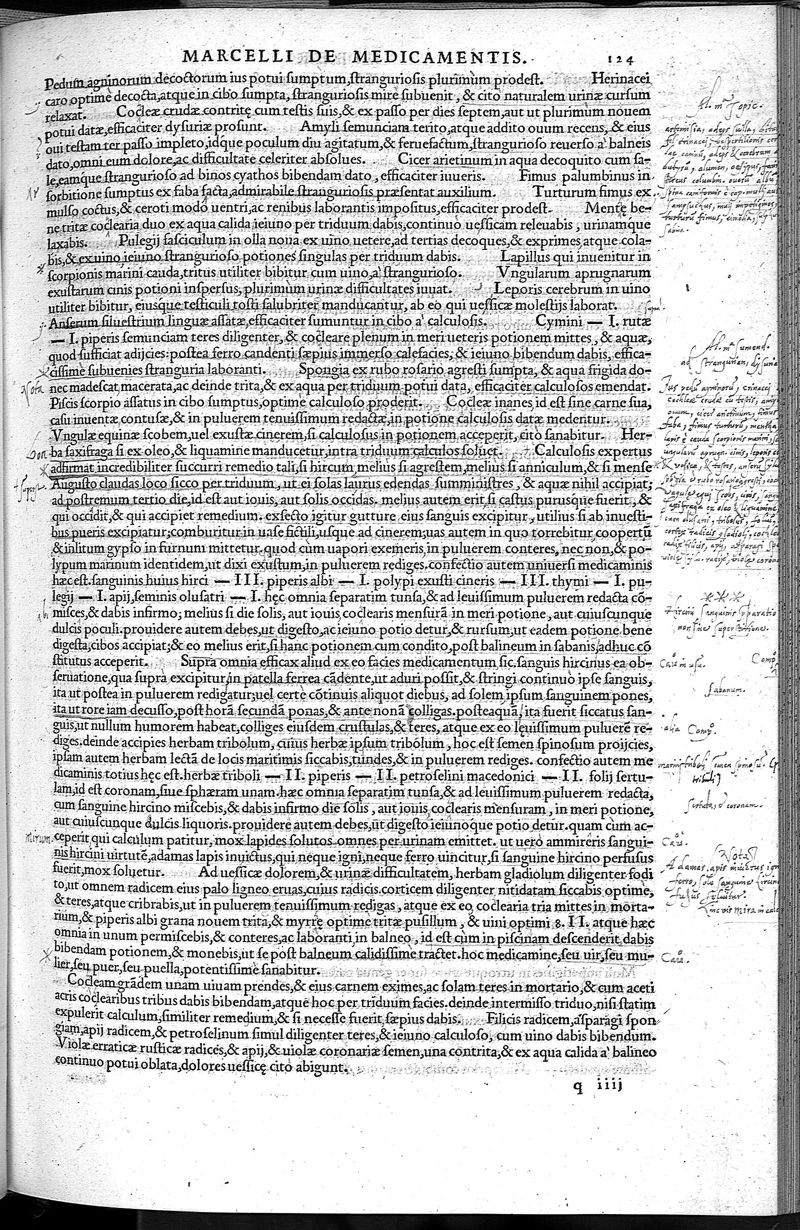 MARCELLI DE MEDICAMENTIS. 124
Pedum agninorum decoctorum ius potui sumptum, stranguriosis plurimùm prodest. Herinacei
caro optimè decocta, atque in cibo sumpta, stranguriosis mirè subuenit, & citò naturalem urinæ cursum
relaxat. Cocleæ crudæ contritę cum testis suis, & ex passo per dies septem, aut ut plurimùm nouem
potui datæ, efficaciter dysuriæ prosunt. Amyli semunciam terito, atque addito ouum recens, & eius
oui testam ter passo impleto, idque poculum diu agitatum, & feruefactum, stranguriosο reuerso a' balneis
dato, omni eum dolore, ac difficultate celeriter absolues. Cicer arietinum in aqua decoquito cum sa-
le, eamque stranguriosο ad binos cyathos bibendam dato, efficaciter iuueris. Fimus palumbinus in
sorbitione sumptus ex faba facta, admirabile stranguriosis præsentat auxilium. Turturum fimus ex
mulso coctus, & ceroti modo uentri, ac renibus laborantis impositus, efficaciter prodest. Mentę be-
ne tritæ coclearia duo ex aqua calida ieiuno per triduum dabis, continuò uesicam releuabis, urinamque
laxabis. Pulegij fasciculum in olla noua ex uino uetere, ad tertias decoques, & exprimes atque cola-
bis, & ex uino ieiuno stranguriosο potiones singulas per triduum dabis. Lapillus qui inuenitur in
scorpionis marini cauda, tritus utiliter bibitur cum uino, a' stranguriosο. Vngularum aprugnarum
exustarum cinis potioni inspersus, plurimùm urinæ difficultates iuuat. Leporis cerebrum in uino
utiliter bibitur, eiusque testiculi tosti salubriter manducantur, ab eo qui uesficæ molestijs laborat.
Anserum siluestrium linguæ assatæ, efficaciter sumuntur in cibo a' calculosis. Cymini — I. rutæ
— I. piperis semunciam teres diligenter, & cocleare plenum in meri ueteris potionem mittes, & aquæ,
quod sufficiat adijcies: postea ferro candenti sæpius immerso calefacies, & ieiuno bibendum dabis, effica-
cissimè subuenies stranguria laboranti. Spongia ex rubo rosario agresti sumpta, & aqua frigida do-
nec madescat macerata, ac deinde trita, & ex aqua per triduum potui data, efficaciter calculosos emendat.
Piscis scorpio assatus in cibo sumptus, optimè calculoso proderit. Cocleæ inanes, id est sine carne sua,
casu inuentæ contusæ, & in puluerem tenuissimum redactæ, in potione calculosis datæ medentur.
Vngulæ equinæ scobem, uel exustæ cinerem, si calculosus in potionem acceperit, citò sanabitur. Her-
ba saxifraga si ex oleo, & liquamine manducetur, intra triduum calculos soluet. Calculosis expertus
adfirmat incredibiliter succurri remedio tali, si hircum, melius si agrestem, melius si anniculum, & si mense
Augusto claudas loco sicco per triduum, ut ei solas laurus edendas sumministres, & aquæ nihil accipiat;
ad postremum tertio die, id est aut iouis, aut solis occidas. melius autem erit, si castus purusque fuerit, &
qui occidit, & qui accipiet remedium. exsecto igitur gutture eius sanguis excipitur, utilius si ab inuesti-
bus pueris excipiatur; comburitur in uase fictili, usque ad cinerem; uas autem in quo torrebitur, coopertū
& inlitum gypso in furnum mittetur. quod cùm uapori exemeris, in puluerem conteres, nec non, & po-
lypum marinum identidem, ut dixi exustum, in puluerem rediges. confectio autem uniuersi medicaminis
hæc est. sanguinis huius hirci — III. piperis albi — I. polypi exusti cineris — III. thymi — I. pu-
legij — I. apij, seminis olusatri — I. hęc omnia separatim tunsa, & ad leuissimum puluerem redacta cō-
misces, & dabis infirmo; melius si die solis, aut iouis, coclearis mensurā in meri potione, aut cuiuscunque
dulcis poculi. prouidere autem debes, ut digesto, ac ieiuno potio detur, & rursum, ut eadem potione bene
digesta, cibos accipiat; & eo melius erit, si hanc potionem cum condito, post balineum in sabanis, adhuc cō
stitutus acceperit. Supra omnia efficax aliud ex eo facies medicamentum sic. sanguis hircinus ea ob-
seruatione, qua supra excipitur, in patella ferrea cādente, ut aduri possit, & stringi continuò ipse sanguis,
ita ut postea in puluerem redigatur; uel certè cōtinuis aliquot diebus, ad solem, ipsum sanguinem pones,
ita ut rore iam decusso, post horā secundā ponas, & ante nonā colligas. posteaquā, ita fuerit siccatus san-
guis, ut nullum humorem habeat, colliges eiusdem crustulas, & teres, atque ex eo leuissimum puluerē re-
diges. deinde accipies herbam tribolum, cuius herbæ ipsum tribolum, hoc est semen spinosum proijcies,
ipsam autem herbam lectā de locis maritimis siccabis, tundes, & in puluerem rediges. confectio autem me
dicaminis totius hęc est. herbæ triboli — II. piperis — II. petroselini macedonici — II. folij sertu-
lam, id est coronam, siue sphæram unam. hæc omnia separatim tunsa, & ad leuissimum puluerem redacta,
cum sanguine hircino miscebis, & dabis infirmo die solis, aut iouis, coclearis mensuram, in meri potione,
aut cuiuscunque dulcis liquoris. prouidere autem debes, ut digesto ieiunoque potio detur. quam cùm ac-
ceperit, qui calculum patitur, mox lapides solutos, omnes per urinam emittet. ut uerò ammireris sangui-
nis hircini uirtutē, adamas lapis inuictus, qui neque igni, neque ferro uincitur, si sanguine hircino perfusus
fuerit, mox soluetur. Ad uesicæ dolorem, & urinæ difficultatem, herbam gladiolum diligenter fodi
to, ut omnem radicem eius palo ligneo eruas, cuius radicis corticem diligenter nitidatam siccabis optimè,
& teres, atque cribrabis, ut in puluerem tenuissimum redigas, atque ex eo coclearia tria mittes in morta-
rium, & piperis albi grana nouem trita, & myrtę optimè tritæ pusillum, & uini optimi 8. II. atque hæc
omnia in unum permiscebis, & conteres, ac laboranti, in balneo, id est cùm in piscinam descenderit, dabis
bibendam potionem, & monebis, ut se post balneum calidissimè tractet. hoc medicamine, seu uir, seu mu-
lier, seu puer, seu puella, potentissimè sanabitur.
Cocleam grādem unam uiuam prendes, & eius carnem eximes, ac solam teres in mortario, & cum aceti
acris coclearibus tribus dabis bibendam, atque hoc per triduum facies. deinde intermisso triduo, nisi statim
expulerit calculum, similiter remedium, & si necesse fuerit, sæpius dabis. Filicis radicem, asparagi spon
giam, apij radicem, & petroselinum simul diligenter teres, & ieiuno calculoso, cum uino dabis bibendum.
Violæ erraticæ rusticæ radices, & apij, & uiolæ coronariæ semen, una contrita, & ex aqua calida a' balineo
continuo potui oblata, dolores uesficę citò abigunt.
q iiij
Nota
mirum
Sabanum.
Comp.
Nota